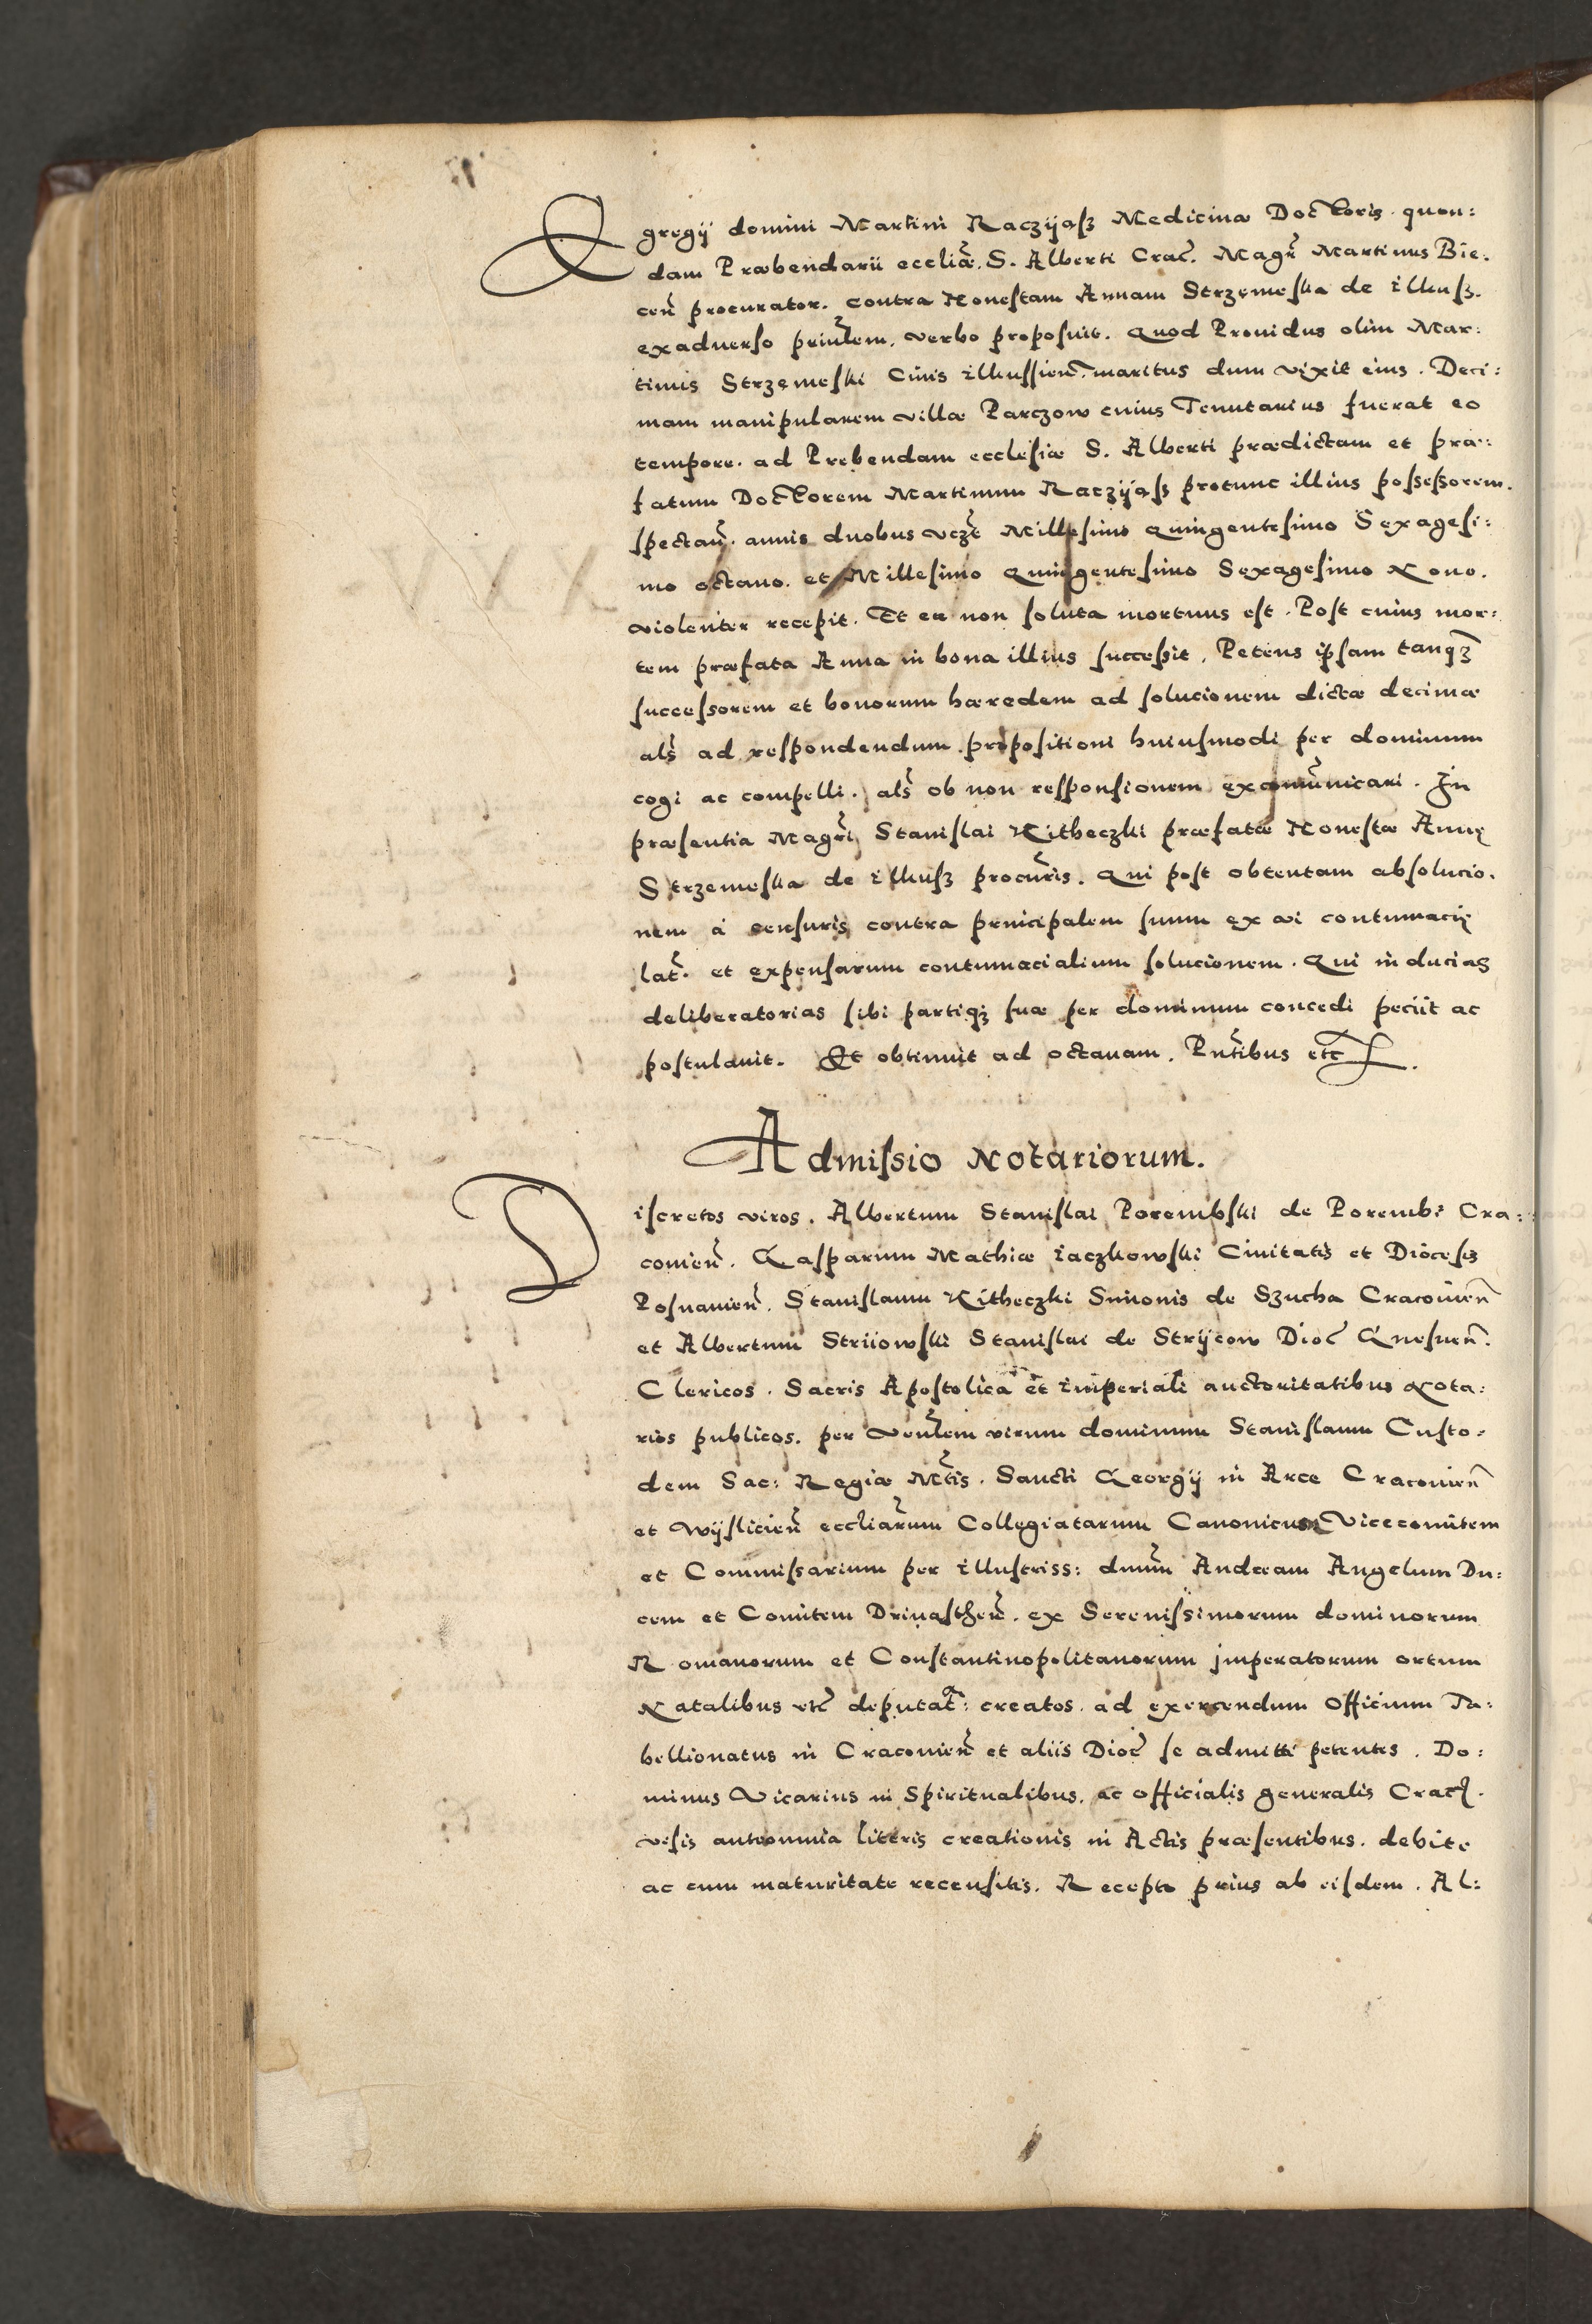 Egregij domini Martini Raczijąsz Medicinæ Doctoris quon:
dam Præbendarii eccliæ. S. Alberti Crac. Magr Martinus Bie:
cen procurator. contra Honestam Annam Strzemeska de ilkusz.
exaduerso prinlem. verbo proposuit. Quod Prouidus olim Mar:
tinus Strzemeski Ciuis ilkussien. maritus dum vixit eius. Deci:
mam manipularem villæ Parczow cuius Tenutarius fuerat eo
tempore. ad Prebendam ecclesiæ S. Alberti prædictam et præ:
fatum Doctorem Martinum Raczijąsz protunc illius possessorem.
spectan. annis duobus vczt Millesimo Quingentesimo Sexagesi:
mo octauo. et Millesimo Quingentesimo Sexagesimo Nono.
violenter recepit. Et ea non soluta mortuus est. Post cuius mor:
tem præfata Anna in bona illius successit. Petens ipsam tanqz
successorem et bonorum hæredem ad solucionem dictæ decimæ
als ad respondendum propositioni huiusmodi per dominum
cogi ac compelli. als ob non responsionem excomunicari. In
præsentia Magri Stanislai Kitheczki præfatæ Honestæ Annę
Strzemeska de ilkusz procuris. Qui post obtentam absolucio:
nem à censuris contra principalem suum ex vi contumacię
lat. et expensarum contumacialium solucionem. Qui inducias
deliberatorias sibi partiqz suæ per dominum concedi peciit ac
postulauit. Et obtinuit ad octauam. Pntibus etc.
Admissio Notariorum.
Discretos viros. Albertum Stanislai Porembski de Poremb: Cra:
couien. Gasparum Mathiæ iaczkowski Ciuitatis et Diocesis
Posnanien. Stanislaum Kitheczki Simonis de Szucha Cracouien
et Albertum Striiowski Stanislai de Strijcow Dioc Gnesnen.
Clericos. Sacris Apostolica et imperiali auctoritatibus Nota:
rios publicos. per Venlem virum dominum Stanislaum Custo:
dem Sac: Regiæ Mtis. Sancti Georgij in Arce Cracouien
et Wijslicien eccliarum Collegiatarum Canonicum Vicecomitem
et Commissarium per illustriss: dnum Andream Angelum Du:
cem et Comitem Drinasthen. ex Serenissimorum dominorum
Romanorum et Constantinopolitanorum imperatorum ortum
Natalibus etc deputat: creatos. ad exercendum Officium Ta:
bellionatus in Cracouien et aliis Dioc se admitti petentes. Do:
minus Vicarius in Spiritualibus. ac officialis generalis Crac.
visis anteomnia literis creationis in Actis præsentibus. debite
ac cum maturitate recensitis. Recepto prius ab eisdem. Al: